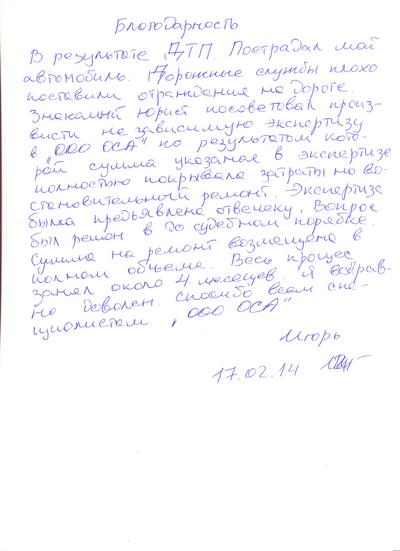 Благодарность
В результате ДТП. Пострадал мой
автомобиль. Дорожные службы плохо
поставили ограждения на дороге.
Знакомый юрист посоветовал произ-
висти не зависимую экспертизу
в "ООО ОСА" по результатом кото-
рой сумма указаная в экспертизе
полностью покрывала затраты но во-
становительный ремонт. Экспертиза
была предъявлена отвечеку. Вопрос
был решон в до судебном порядке.
Сумма на ремонт возмещена в
полном объеме. Весь процес
занял около 4 месяцев. Я всёрав-
но доволен. спасибо всем спе-
циолистам "ООО ОСА"
Игорь
17.02.14